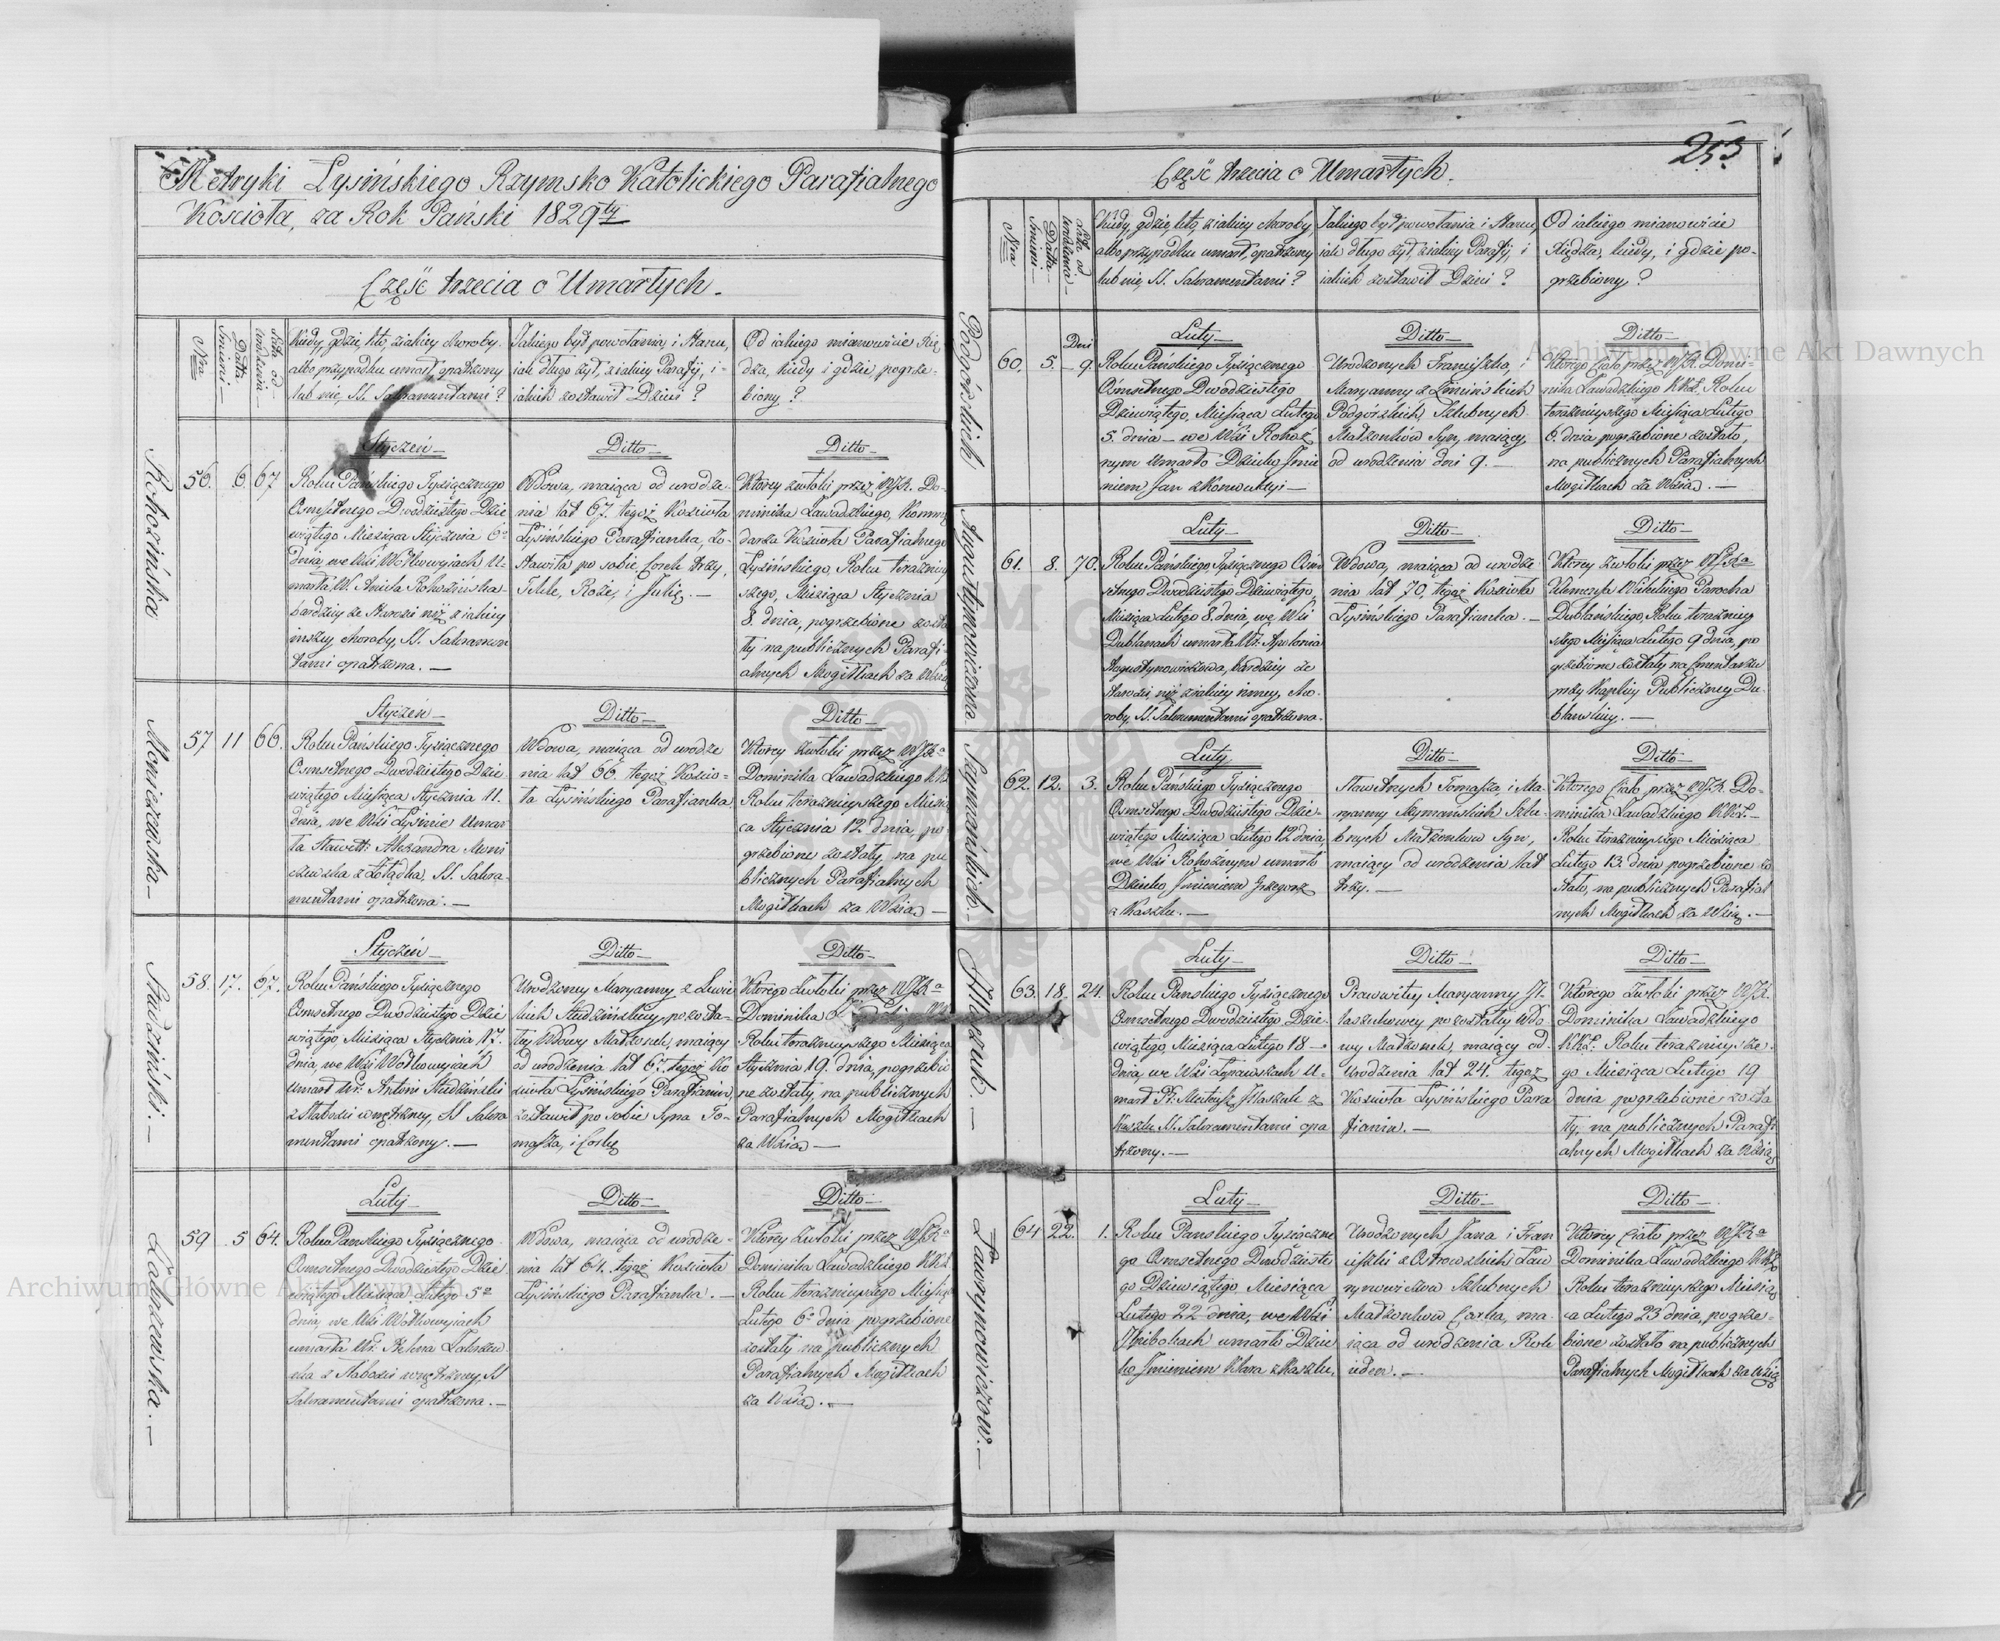 Metryki Lysińskiego Rzymsko Katolickiego Parafialnego
Kościoła, za Rok Pański 1829ty
Część trzecia o Umarłych.
Nro
Datta Śmierci
Lata od urodzenia
Kiedy, gdzie, kto, z iakiey choroby,
albo przypadku umarł, opatrzony
lub nie, SS. Sakramentami?
Jakiego był powołania, i stanu,
iak długo żył, z iakiey Parafij, i
iakich zostawił Dzieci?
Od iakiego mianowicie Xię
dza, kiedy i gdzie pogrze-
biony?
Rohozińska
56. 6. 67
Styczeń
Roku Pańskiego Tysiącznego
Osmsetnego Dwudziestego Dzie
wiątego Miesiąca Stycznia 6o
dnia, we Wsi Wołkowyiach u-
marła W. Aniela Rohozińska
bardziey ze starości niż z iakiey
inszey choroby, SS. Sakramen
tami opatrzona. —
Ditto
Wdowa, maiąca od urodze-
nia lat 67. tegoż Kościoła
Lysińskiego Parafianka, Zo-
stawiła po sobie Corek trzy,
Teklę, Rożę, i Julię. —
Ditto
Ktorey zwłoki przez WJX. Do-
minika Zawadzkiego, Kommen
darza Kościoła Parafialnego
Lysińskiego, Roku teraźniey
szego, Miesiąca Stycznia
8. dnia, pogrzebione zosta
ły na publicznych Parafi-
alnych Mogiłkach za Wsią
Moniczewska —
57 11 66.
Styczeń
Roku Pańskiego Tysiącznego
Osmsetnego Dwudziestego Dzie
wiątego Miesiąca Stycznia 11.
dnia, we Wsi Lysinie Umar
ła Sławett: Alexandra Moni
czewska z Żołądka, SS. Sakra-
mentami opatrzona. —
Ditto
Wdowa, maiąca od urodze
nia lat 66. tegoż Kościo-
ła Lysińskiego Parafianka
Ditto
Ktorey zwłoki przez WJXa
Dominika Zawadzkiego KKŁ
Roku teraźnieyszego Miesią
ca Stycznia 12 dnia, po
grzebione zostały, na pu
blicznych Parafialnych
Mogiłkach za Wsią —
Studziński. —
58. 17. 67.
Styczeń
Roku Pańskiego Tysiącznego
Osmsetnego Dwudziestego Dzie
wiątego, Miesiąca Stycznia 17.
dnia, we Wsi Wołkowyiach
umarł Ur. Antoni Studziński
z Słabości wnętrzney, SS Sakra
mentami opatrzony. —
Ditto
Urodzoney Maryanny z
Studzińskiey pozosta-
łey Wdowy Małżonek, maiący
od urodzenia lat 67. tegoż Ko
ścioła Lysińskiego Parafianin,
zostawił po sobie Syna To-
masza, i Corkę
Ditto
Ktorego Zwłoki przez WJXa
Dominika
Roku teraźnieyszego Miesiąca
Stycznia 19. dnia, pogrzebio
ne zostały, na publicznych
Parafialnych Mogiłkach
za Wsią —
59 5 64.
Luty
Roku Pańskiego Tysiącznego
Osmsetnego Dwudziestego Dzie
wiątego Miesiąca Lutego 5o
dnia, we Wsi Wołkowyiach
umarła Ur.
z Słabości wnętrzney, SS
Sakramentami opatrzona. —
Ditto
Wdowa, maiąca od urodze-
nia lat 64. tegoż Kościoła
Lysińskiego Parafianka. —
Ditto
Ktorey Zwłoki przez WJXa
Dominika Zawadzkiego KKŁ
Roku teraźnieyszego Miesiąca
Lutego 6o dnia pogrzebione
zostały na publicznych
Parafialnych Mogiłkach
za Wsią. —
253
Część trzecia o Umarłych.
Nro
Datta Śmierci
Lata od urodzenia
Kiedy, gdzie, kto, z iakiey choroby,
albo przypadku umarł, opatrzony
lub nie, SS. Sakramentami?
Jakiego był powołania i Stanu,
iak długo żył, z iakiey Parafij, i
iakich zostawił Dzieci?
Od iakiego mianowicie
Xiędza, kiedy, i gdzie po-
grzebiony?
Podgórskich
60. 5. Dni 9.
Luty
Roku Pańskiego Tysiącznego
Ośmsetnego Dwudziestego
Dziewiątego, Miesiąca Lutego
5. dnia — we Wsi Rohoź
nym Umarło Dziecko Jmie
niem Jan z Konwulsyi —
Ditto
Urodzonych Franciszka, i
Maryanny z
Podgórskich Szlubnych
Małżonków Syn, maiący,
od urodzenia dni 9. —
Ditto
Ktorego Ciało przez WJX. Domi-
nika Zawadzkiego KKŁ. Roku
teraźnieyszego Miesiąca Lutego
6. dnia, pogrzebione zostało,
na publicznych Parafialnych
Mogiłkach za Wsią. —
Augustynowiczowa.
61. 8. 70.
Luty
Roku Pańskiego, Tysiącznego Ośm
setnego Dwudziestego Dziewiątego,
Miesiąca Lutego 8. dnia, we Wsi
Dublanach umarła Ur. Apolonia
Augustynowiczowa, bardziey ze
starości niż z iakiey inney, cho-
roby, SS. Sakramentami opatrzona.
Ditto
Wdowa, maiąca od urodze
nia lat 70, tegoż Kościoła
Lysińskiego Parafianka. —
Ditto
Ktorey zwłoki przez WJXa
Klemensa Parocha
Dublańskiego, Roku teraźniey
szego Miesiąca Lutego 9 dnia, po
grzebione zostały na Cmentarzu
przy Kaplicy Publiczney Du-
blanskiey. —
Szymańskich. —
62. 12. 3.
Luty
Roku Pańskiego Tysiącznego
Osmsetnego Dwudziestego Dzie-
wiątego Miesiąca Lutego 12 dnia,
we Wsi Rohoźnym umarło
Dziecko Jmieniem Grzegorz
z Kaszlu. —
Ditto
Sławetnych Tomasza i Ma-
ryanny Szymańskich Szlu-
bnych Małżonkow Syn,
maiący od urodzenia lat
trzy. —
Ditto
Ktorego Ciało przez WJX. Do-
minika Zawadzkiego KKŁ. —
Roku teraźnieyszego Miesiąca
Lutego 13. dnia pogrzebione zo
stało, na publicznych Parafial
nych Mogiłkach za Wsią. —
63. 18. 24.
Luty
Roku Pańskiego Tysiącznego
Osmsetnego Dwudziestego Dzie-
wiątego, Miesiąca Lutego 18 —
dnia, we Wsi Lipawskach u-
marł
Kaszlu SS. Sakramentami opa
trzony. —
Ditto
Prawowitey Maryanny
pozostałey Wdo
wy Małżonek, maiący od
Urodzenia lat 24, tegoż
Kościoła Lysińskiego Para
fianin. —
Ditto
Ktorego Zwłoki przez WJX.
Dominika Zawadzkiego
KKŁ. Roku teraźnieysze-
go Miesiąca Lutego 19
dnia pogrzebione zosta
ły, na publicznych Parafi
alnych Mogiłkach za Wsią
Ławrynowiczow. —
64 22. 1.
Luty
Roku Pańskiego Tysiączne
go Osmsetnego Dwudzieste
go Dziewiątego, Miesiąca
Lutego 22 dnia, we Wsi
umarło Dziec
ko Jmieniem Klara z Kaszlu,
Ditto
Urodzonych Jana i Fran
ciszki z Ostrowskich Ław
rynowiczow Szlubnych
Małżonkow Corka, ma-
iąca od urodzenia Rok
ieden. —
Ditto
Ktorey Ciało przez WJXa
Dominika Zawadzkiego KKŁ
Roku teraźnieyszego Miesią
ca Lutego 23 dnia, pogrze-
bione zostało na publicznych
Parafialnych Mogiłkach za Wsią
Archiwum Główne Akt Dawnych
Archiwum Główne Akt Dawnych